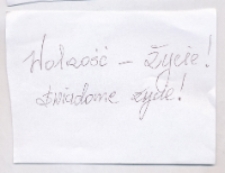 Wolność – życie!
świadome życie!